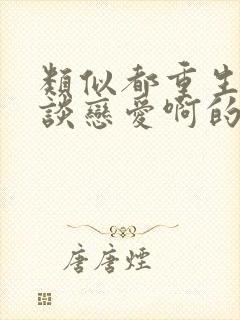 類似都重生
談戀愛啊的
唐唐煙